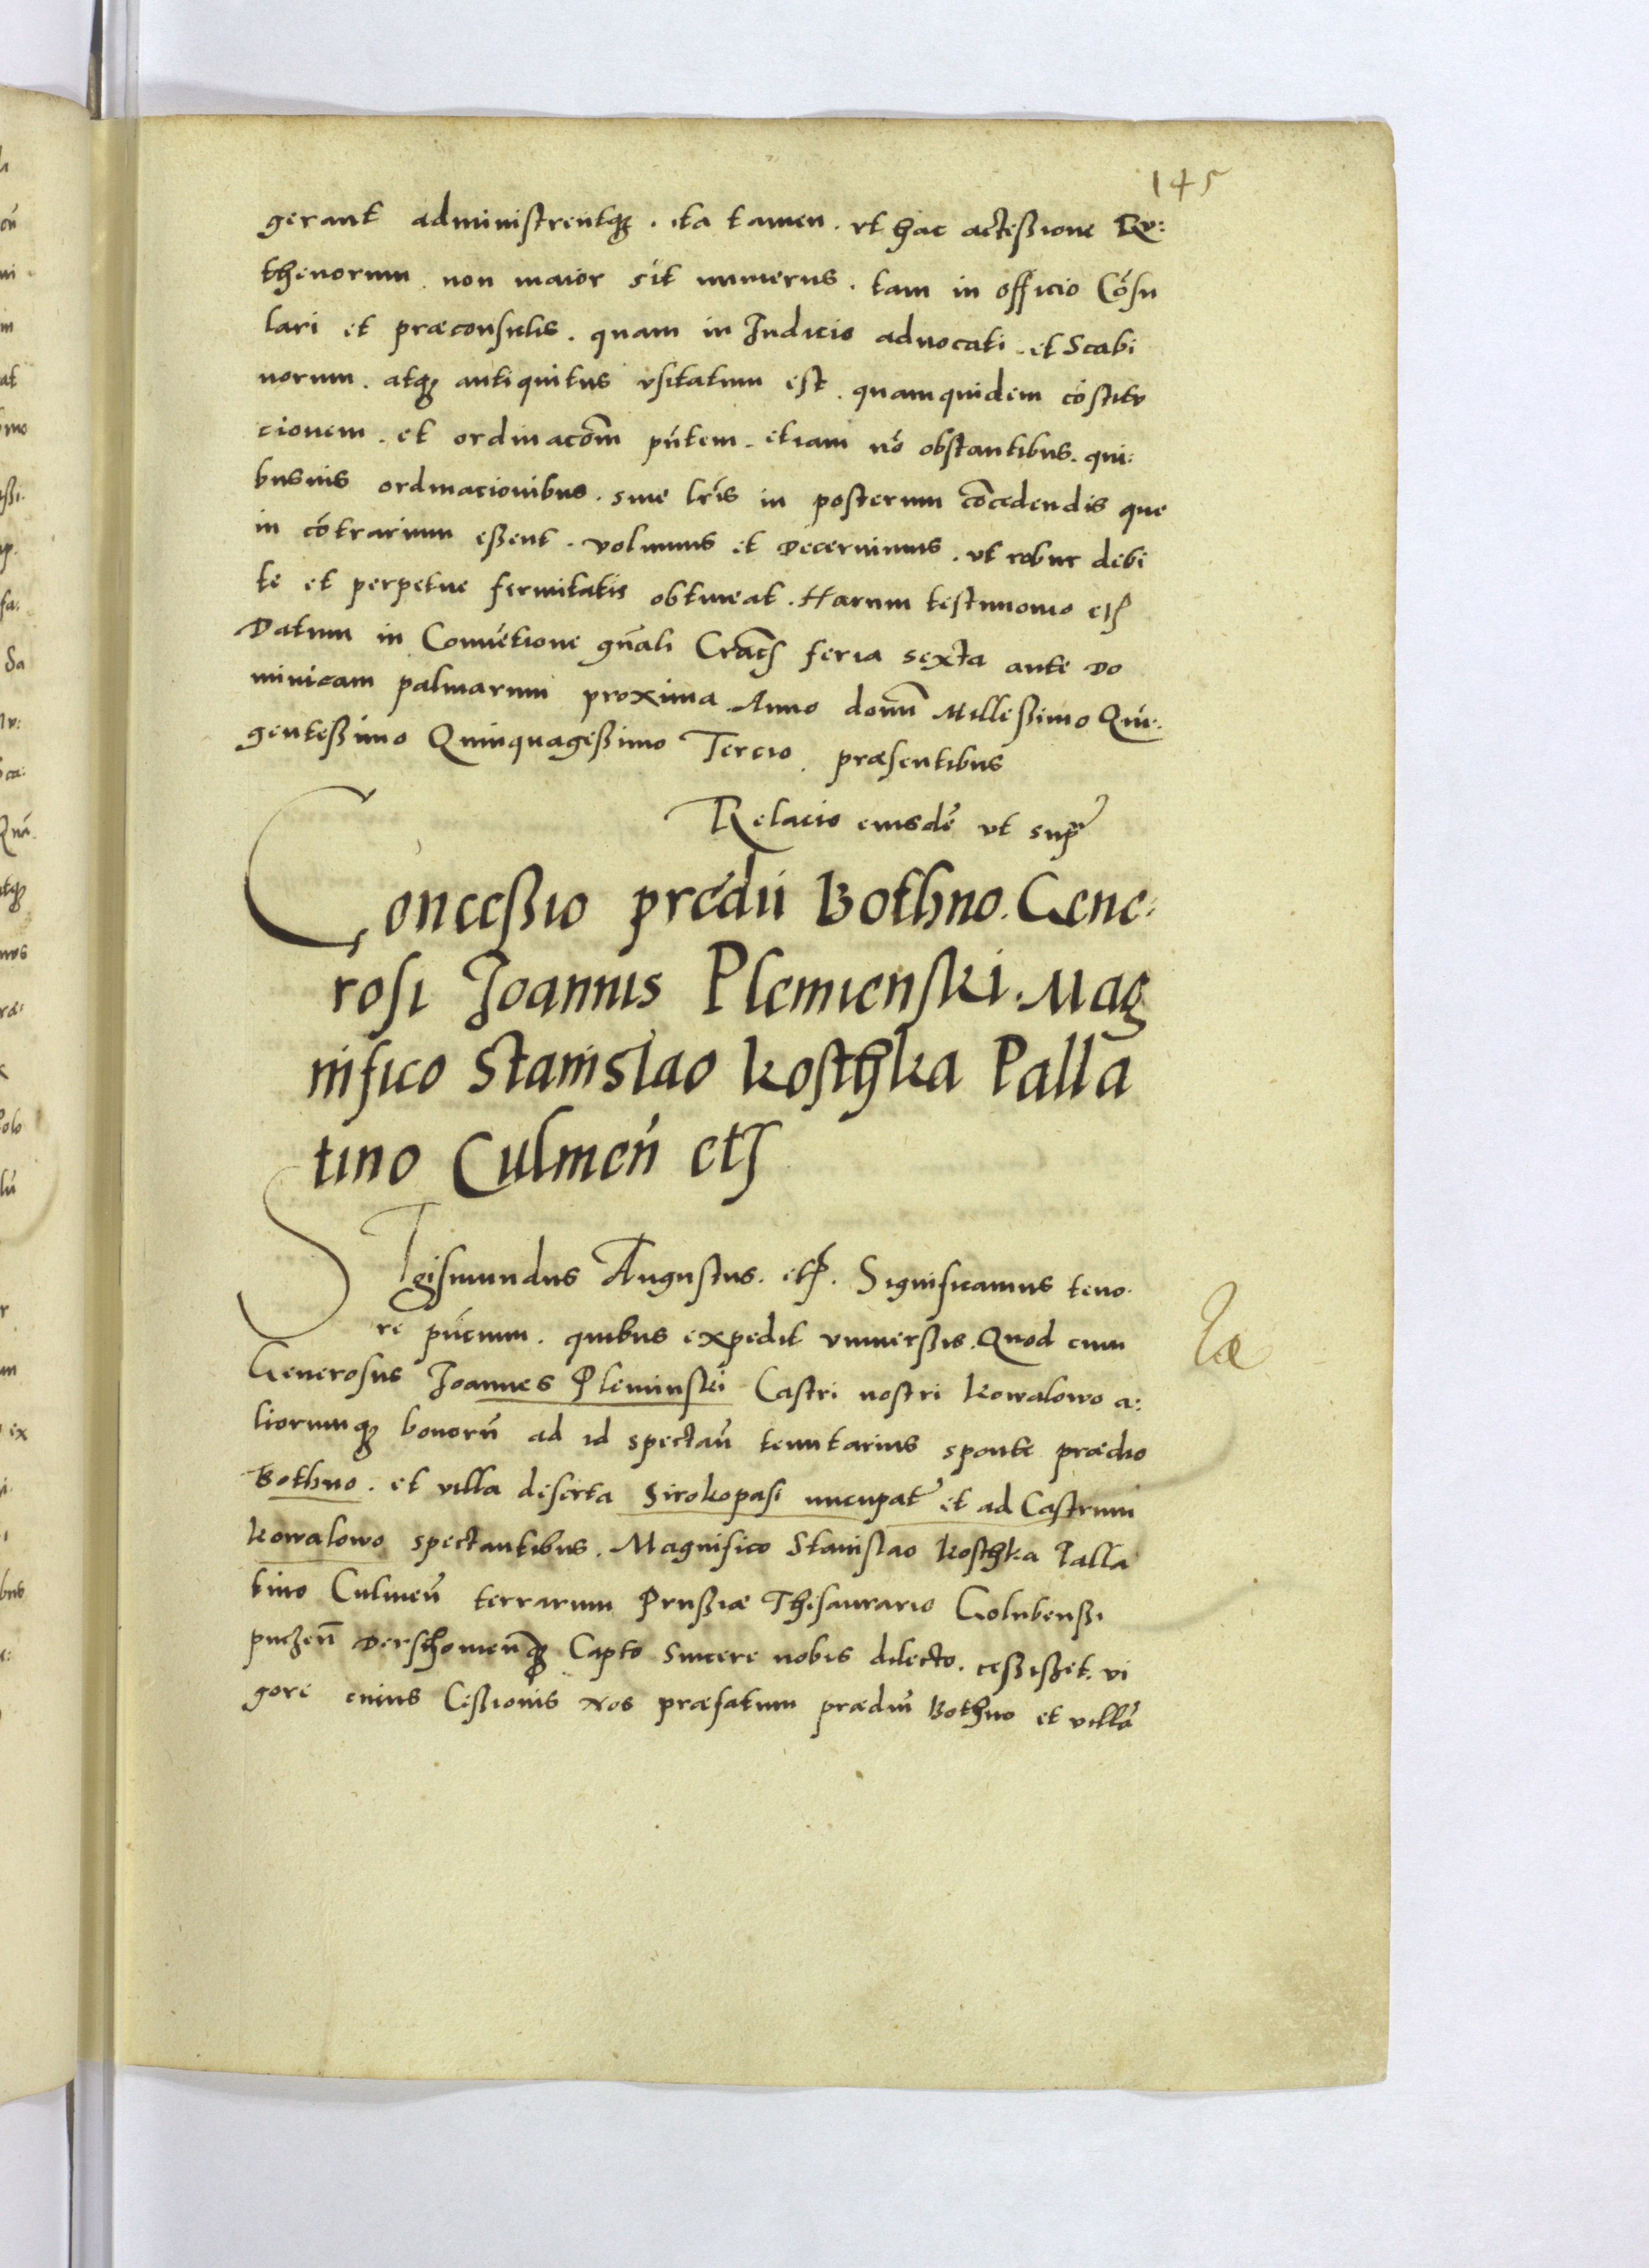 145
gerant administrentq₃. ita tamen. vt hac actessione Ru:
thenorum. non maior sit numerus. tam in officio Cōsu
lari et præconsulis. quam in Iudicio aduocati. et Scabi
norum. atq₃ antiquitus vsitatum est. quamquidem cōstitu
cionem. et ordinacom̃ pn̄tem. etiam nō obstantibus. qui:
busuis ordinacionibus. siue lr̄is in posterum con̄cedendis que
in cōtrarium essent. volumus et Decernimus. vt robur debi
te et perpetue firmitatis obtineat. Harum testimonio etc̃
Datum in Conuētione gn̄ali Crac̃ feria sexta ante Do
minicam palmarum proxima Anno domn̄ Millessimo Quī:
gentessimo Quinquagessimo Tercio. præsentibus
Relacio eiusdē vt supr̃
Concessio predii Bothno. Gene:
rosi Joannis Plemienski. Mag
nifico Stanislao Kosthka Palla
tino Culmen̄ etc̃
SIgismundus Augustus. etc̃. Significamus teno.
re pn̄cium. quibus expedit vniuersis. Quod cum
Generosus Joannes Pleminski Castri nostri Kowalowo a:
liorumq₃ bonorū ad id spectan̄ tenutarius sponte prædio
Bothno. et villa deserta Sirokopasi nucupat̃ et ad Castrum
Kowalowo spectantibus. Magnifico Stanislao Kosthka Palla
tino Culmen̄ terrarum Prussiæ Thesaurario Golubenssi
puczen̄ Derschomen̄q₃ Capto Sincere nobis dilecto. cessisset. vi
gore cuius Cessionis Nos præfatum prædiū Bothno et villā